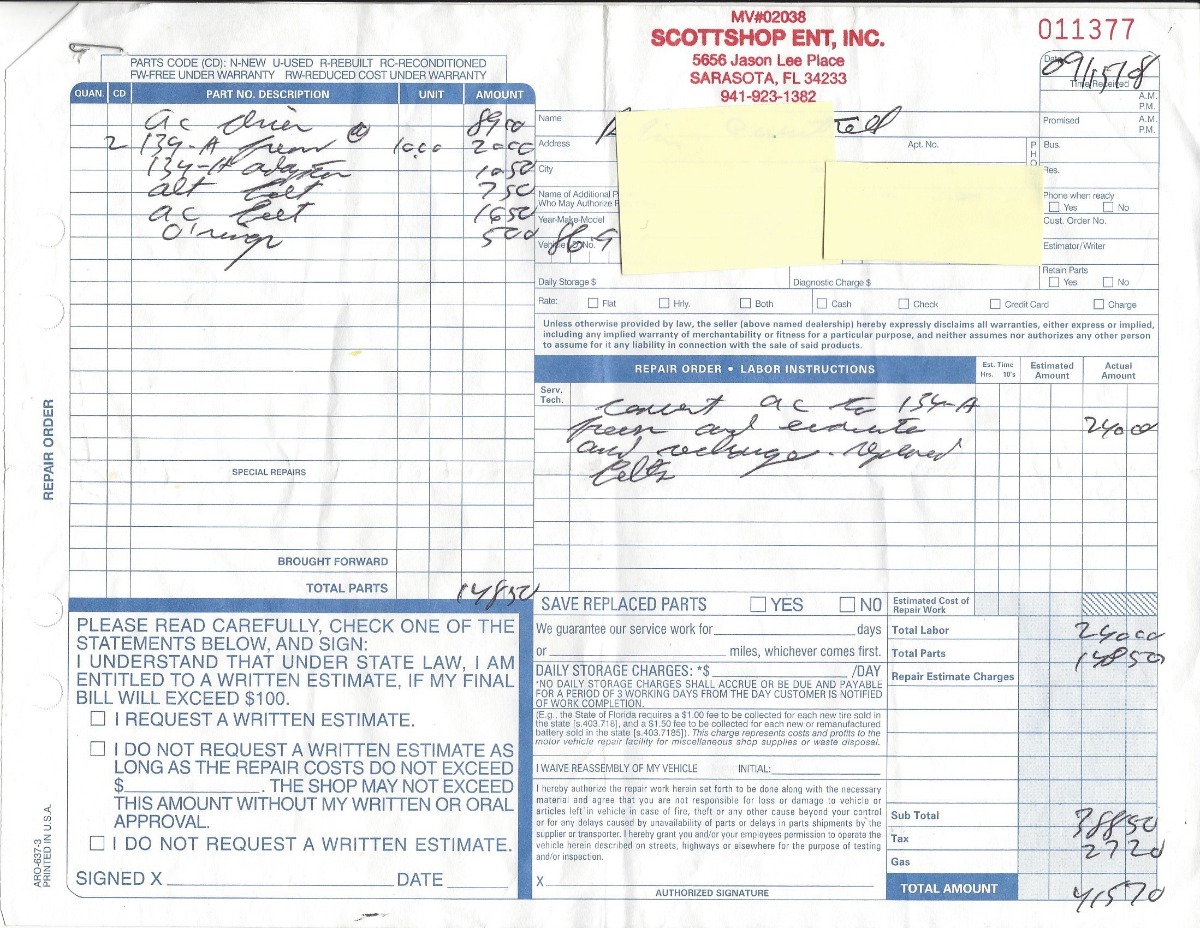 MV#02038
SCOTTSHOP ENT, INC.
5656 Jason Lee Place
SARASOTA, FL 34233
941-923-1382
011377
PARTS CODE (CD): N-NEW U-USED R-REBUILT RC-RECONDITIONED
FW-FREE UNDER WARRANTY RW-REDUCED COST UNDER WARRANTY
QUAN. CD PART NO. DESCRIPTION UNIT AMOUNT
ac drier 8900
2 134-A freon @ 1000 2000
134-A adapter 1050
alt belt 750
ac belt 1650
O'rings 500
SPECIAL REPAIRS
BROUGHT FORWARD
TOTAL PARTS 14850
REPAIR ORDER
ARO-637-3
PRINTED IN U.S.A.
Date
Time Received
A.M.
P.M.
Name
Promised A.M.
P.M.
Address Apt. No.
PHO
Bus.
City
Res.
Name of Additional P
Who May Authorize
Phone when ready
Yes No
Year-Make-Model
Cust. Order No.
Vehicle No. 86
Estimator/Writer
Retain Parts
Yes No
Daily Storage $ Diagnostic Charge $
Rate: Flat Hrly. Both Cash Check Credit Card Charge
Unless otherwise provided by law, the seller (above named dealership) hereby expressly disclaims all warranties, either express or implied,
including any implied warranty of merchantability or fitness for a particular purpose, and neither assumes nor authorizes any other person
to assume for it any liability in connection with the sale of said products.
REPAIR ORDER • LABOR INSTRUCTIONS Est. Time Hrs. 10's Estimated Amount Actual Amount
Serv.
Tech.
convert ac to 134-A
freon and evacuate 24000
and recharge. replaced
belts
PLEASE READ CAREFULLY, CHECK ONE OF THE
STATEMENTS BELOW, AND SIGN:
I UNDERSTAND THAT UNDER STATE LAW, I AM
ENTITLED TO A WRITTEN ESTIMATE, IF MY FINAL
BILL WILL EXCEED $100.
I REQUEST A WRITTEN ESTIMATE.
I DO NOT REQUEST A WRITTEN ESTIMATE AS
LONG AS THE REPAIR COSTS DO NOT EXCEED
$ . THE SHOP MAY NOT EXCEED
THIS AMOUNT WITHOUT MY WRITTEN OR ORAL
APPROVAL.
I DO NOT REQUEST A WRITTEN ESTIMATE.
SIGNED X DATE
SAVE REPLACED PARTS YES NO
We guarantee our service work for days
or miles, whichever comes first.
DAILY STORAGE CHARGES: *$ /DAY
*NO DAILY STORAGE CHARGES SHALL ACCRUE OR BE DUE AND PAYABLE
FOR A PERIOD OF 3 WORKING DAYS FROM THE DAY CUSTOMER IS NOTIFIED
OF WORK COMPLETION.
(E.g., the State of Florida requires a $1.00 fee to be collected for each new tire sold in
the state [s.403.718], and a $1.50 fee to be collected for each new or remanufactured
battery sold in the state [s.403.7185]). This charge represents costs and profits to the
motor vehicle repair facility for miscellaneous shop supplies or waste disposal.
I WAIVE REASSEMBLY OF MY VEHICLE INITIAL:
I hereby authorize the repair work herein set forth to be done along with the necessary
material and agree that you are not responsible for loss or damage to vehicle or
articles left in vehicle in case of fire, theft or any other cause beyond your control
or for any delays caused by unavailability of parts or delays in parts shipments by the
supplier or transporter. I hereby grant you and/or your employees permission to operate the
vehicle herein described on streets, highways or elsewhere for the purpose of testing
and/or inspection.
X
AUTHORIZED SIGNATURE
Estimated Cost of
Repair Work
Total Labor 24000
Total Parts 14850
Repair Estimate Charges
Sub Total 38850
Tax 2720
Gas
TOTAL AMOUNT 41570